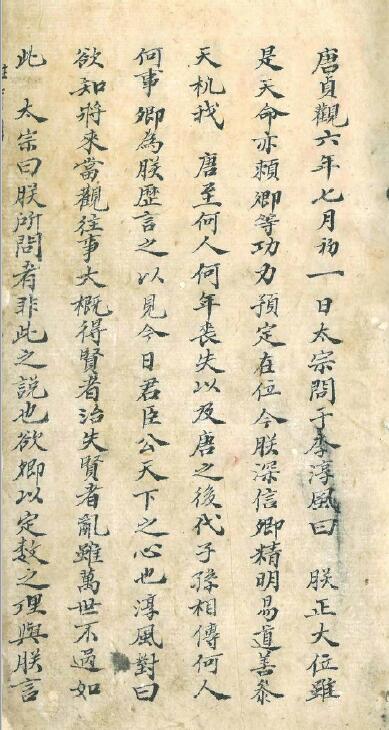 唐貞觀六年七月初一日太宗問于李淳風曰　朕正大位雖
是天命亦賴卿等功力預定在位今朕深信卿精明易道善叅
天机我　唐至何人何年丧失以及唐之後代子孫相傳何人
何事卿為朕歷言之以見今日君臣公天下之心也淳風對曰
欲知將來當觀徃事大概得賢者治失賢者亂雖萬世不過如
此　太宗曰朕所問者非此之說也欲卿以定數之理與朕言